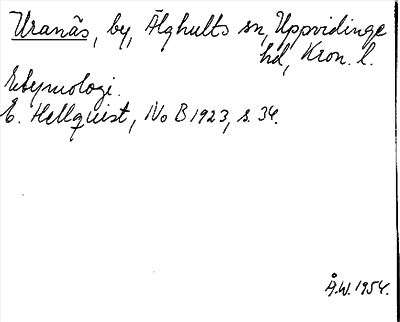 Uranäs, by, Älghults sn, Uppvidinge
hd, Kron. l.
Etymologi.
E. Hellquist, No B 1923, s. 34.
Å.W. 1954.